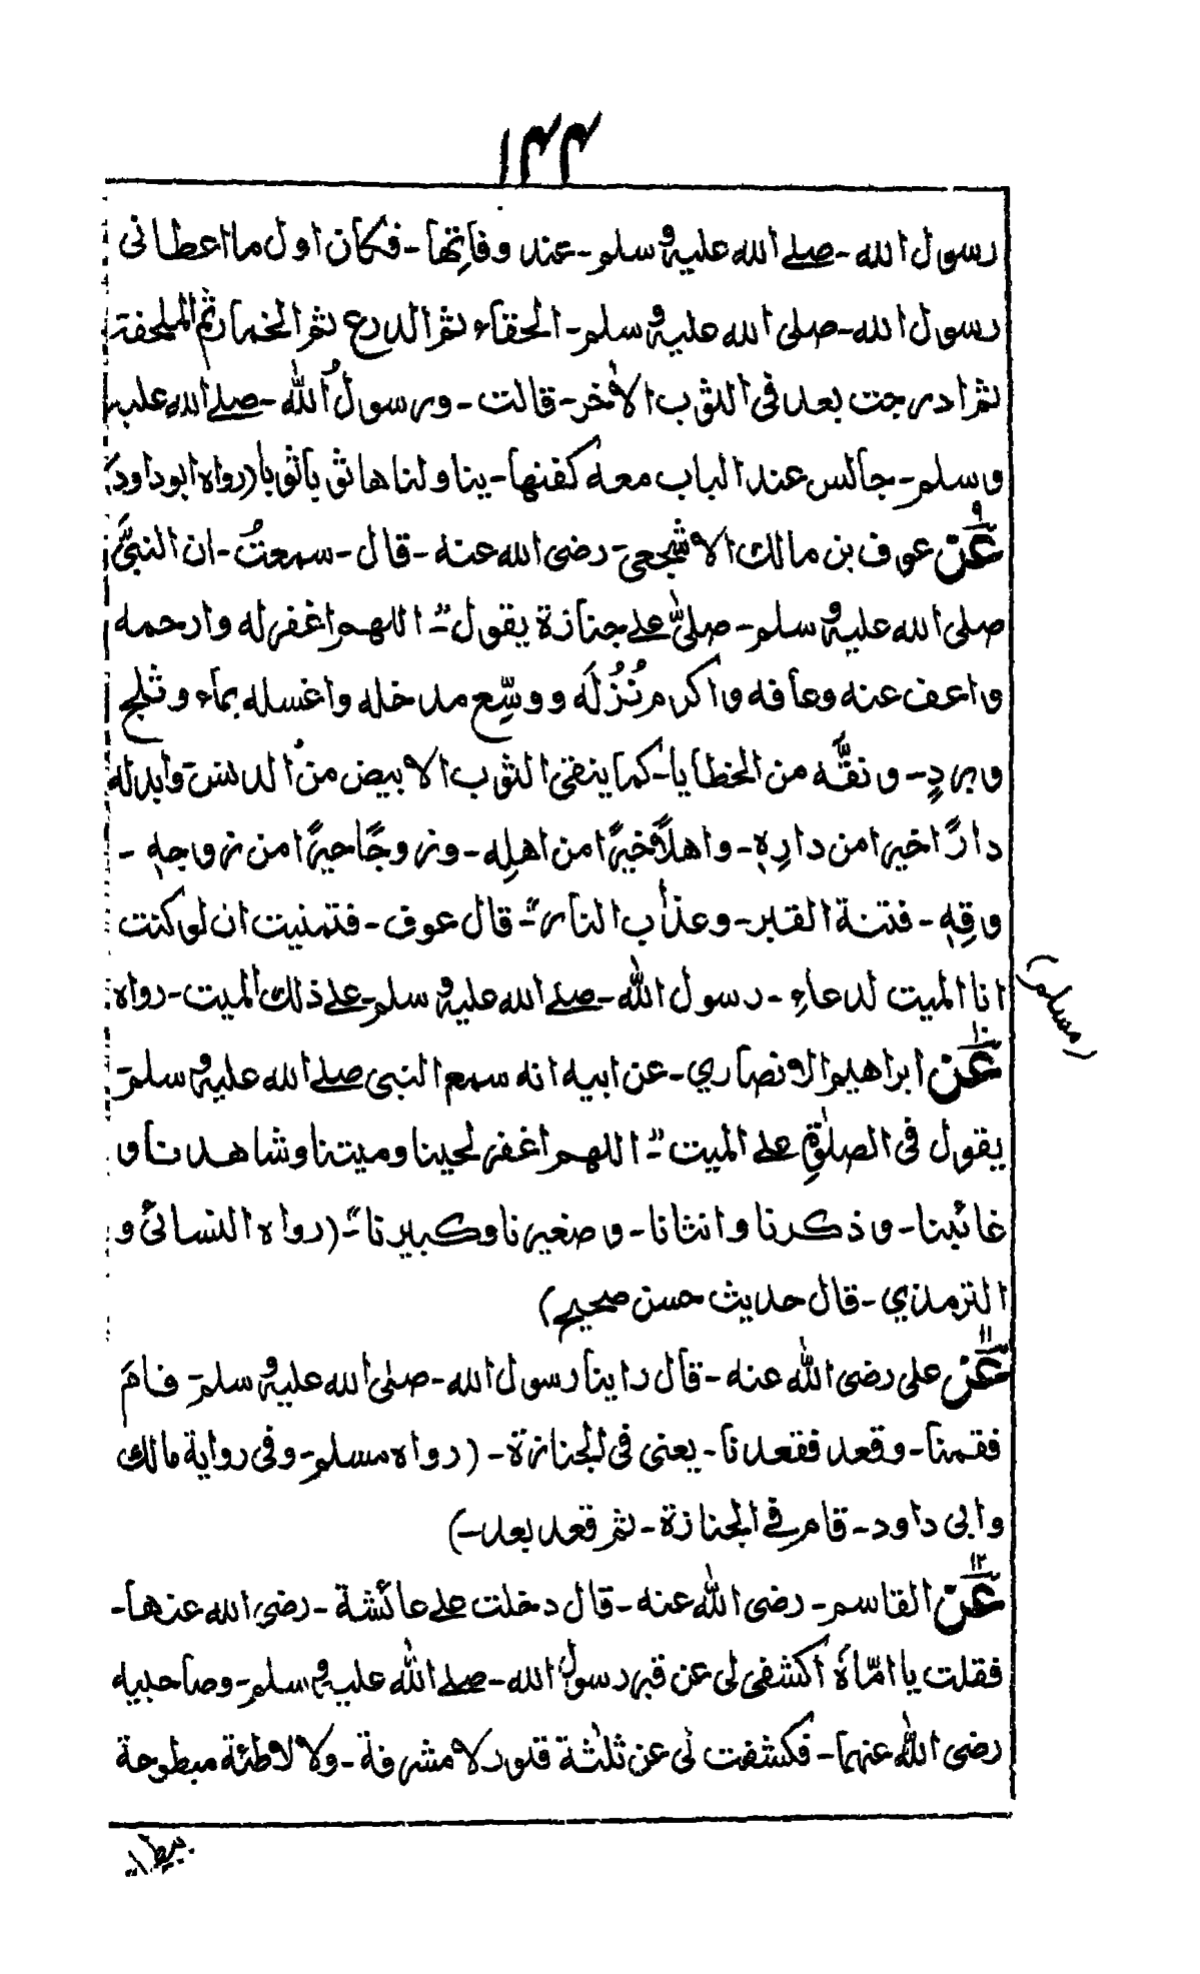 ١٣٣
رسول الله - صلے الله عليه و سلم - عند وفاتها - فكان اول ما اعطانى
رسول الله - صلى الله عليه و سلم - الحقاء ثم الدرع ثم الخمار ثم الملحفة
ثم ادرجت بعد فى الثوب الأخر - قالت - ورسول الله - صلے الله عليه
وسلم - جالس عند الباب معه كفنها - يناولناها ثوباً ثوباً (رواه ابوداود)
٩
عَن عوف بن مالك الاشجعي - رضى الله عنه - قال - سمعتُ - ان النبىَّ
صلى الله عليه و سلم - صلىّ علے جنازة يقول "- اللهم اغفرله وارحمه
واعف عنه وعافه واكرم نُزُلَه ووسِّع مدخله واغسله بماء وثلج
وبردٍ - ونقَّه من الخطايا - كما ينقى الثوب الابيض من الدنس وابدله
دارًا خيرا من دارِهٖ - واهلاً خيرًا من اهلِه - وزوجًا خيرًا من زوجهٖ -
وقِهٖ - فتنة القبر - وعذاب النار"- قال عوف - فتمنيت ان لو كنت
انا الميت لدعاءِ - رسول الله - صلے الله عليه و سلم - علے ذلك الميت - رواه
(مسلم)
١٠
عَن ابراهيم الانصاري - عن ابيه انه سمع النبى صلے الله عليه و سلم -
يقول فى الصلوٰةِ علے الميت "- اللهم اغفر لحينا وميتنا وشاهدنا و
غائبنا - وذكرنا وانثانا - وصغيرنا وكبيرنا"- (رواه النسائى و
الترمذي - قال حديث حسن صحيح)
١١
عَن على رضى الله عنه - قال راينا رسول الله - صلى الله عليه و سلم - قامَ
فقمنا - وقعد فقعدنا - يعنى فى الجنازة - (رواه مسلم - وفى رواية مالك
وابى داود - قام فے الجنازة - ثم قعد بعد -)
١٢
عَن القاسم - رضى الله عنه - قال دخلت علے عائشة - رضى الله عنها -
فقلت يا امّاه اكشفى لى عن قبر رسول الله - صلے الله عليه و سلم - وصاحبيه
رضى الله عنهما - فكشفت لى عن ثلثة قبور لا مشرفة - ولا لاطئة مبطوحة